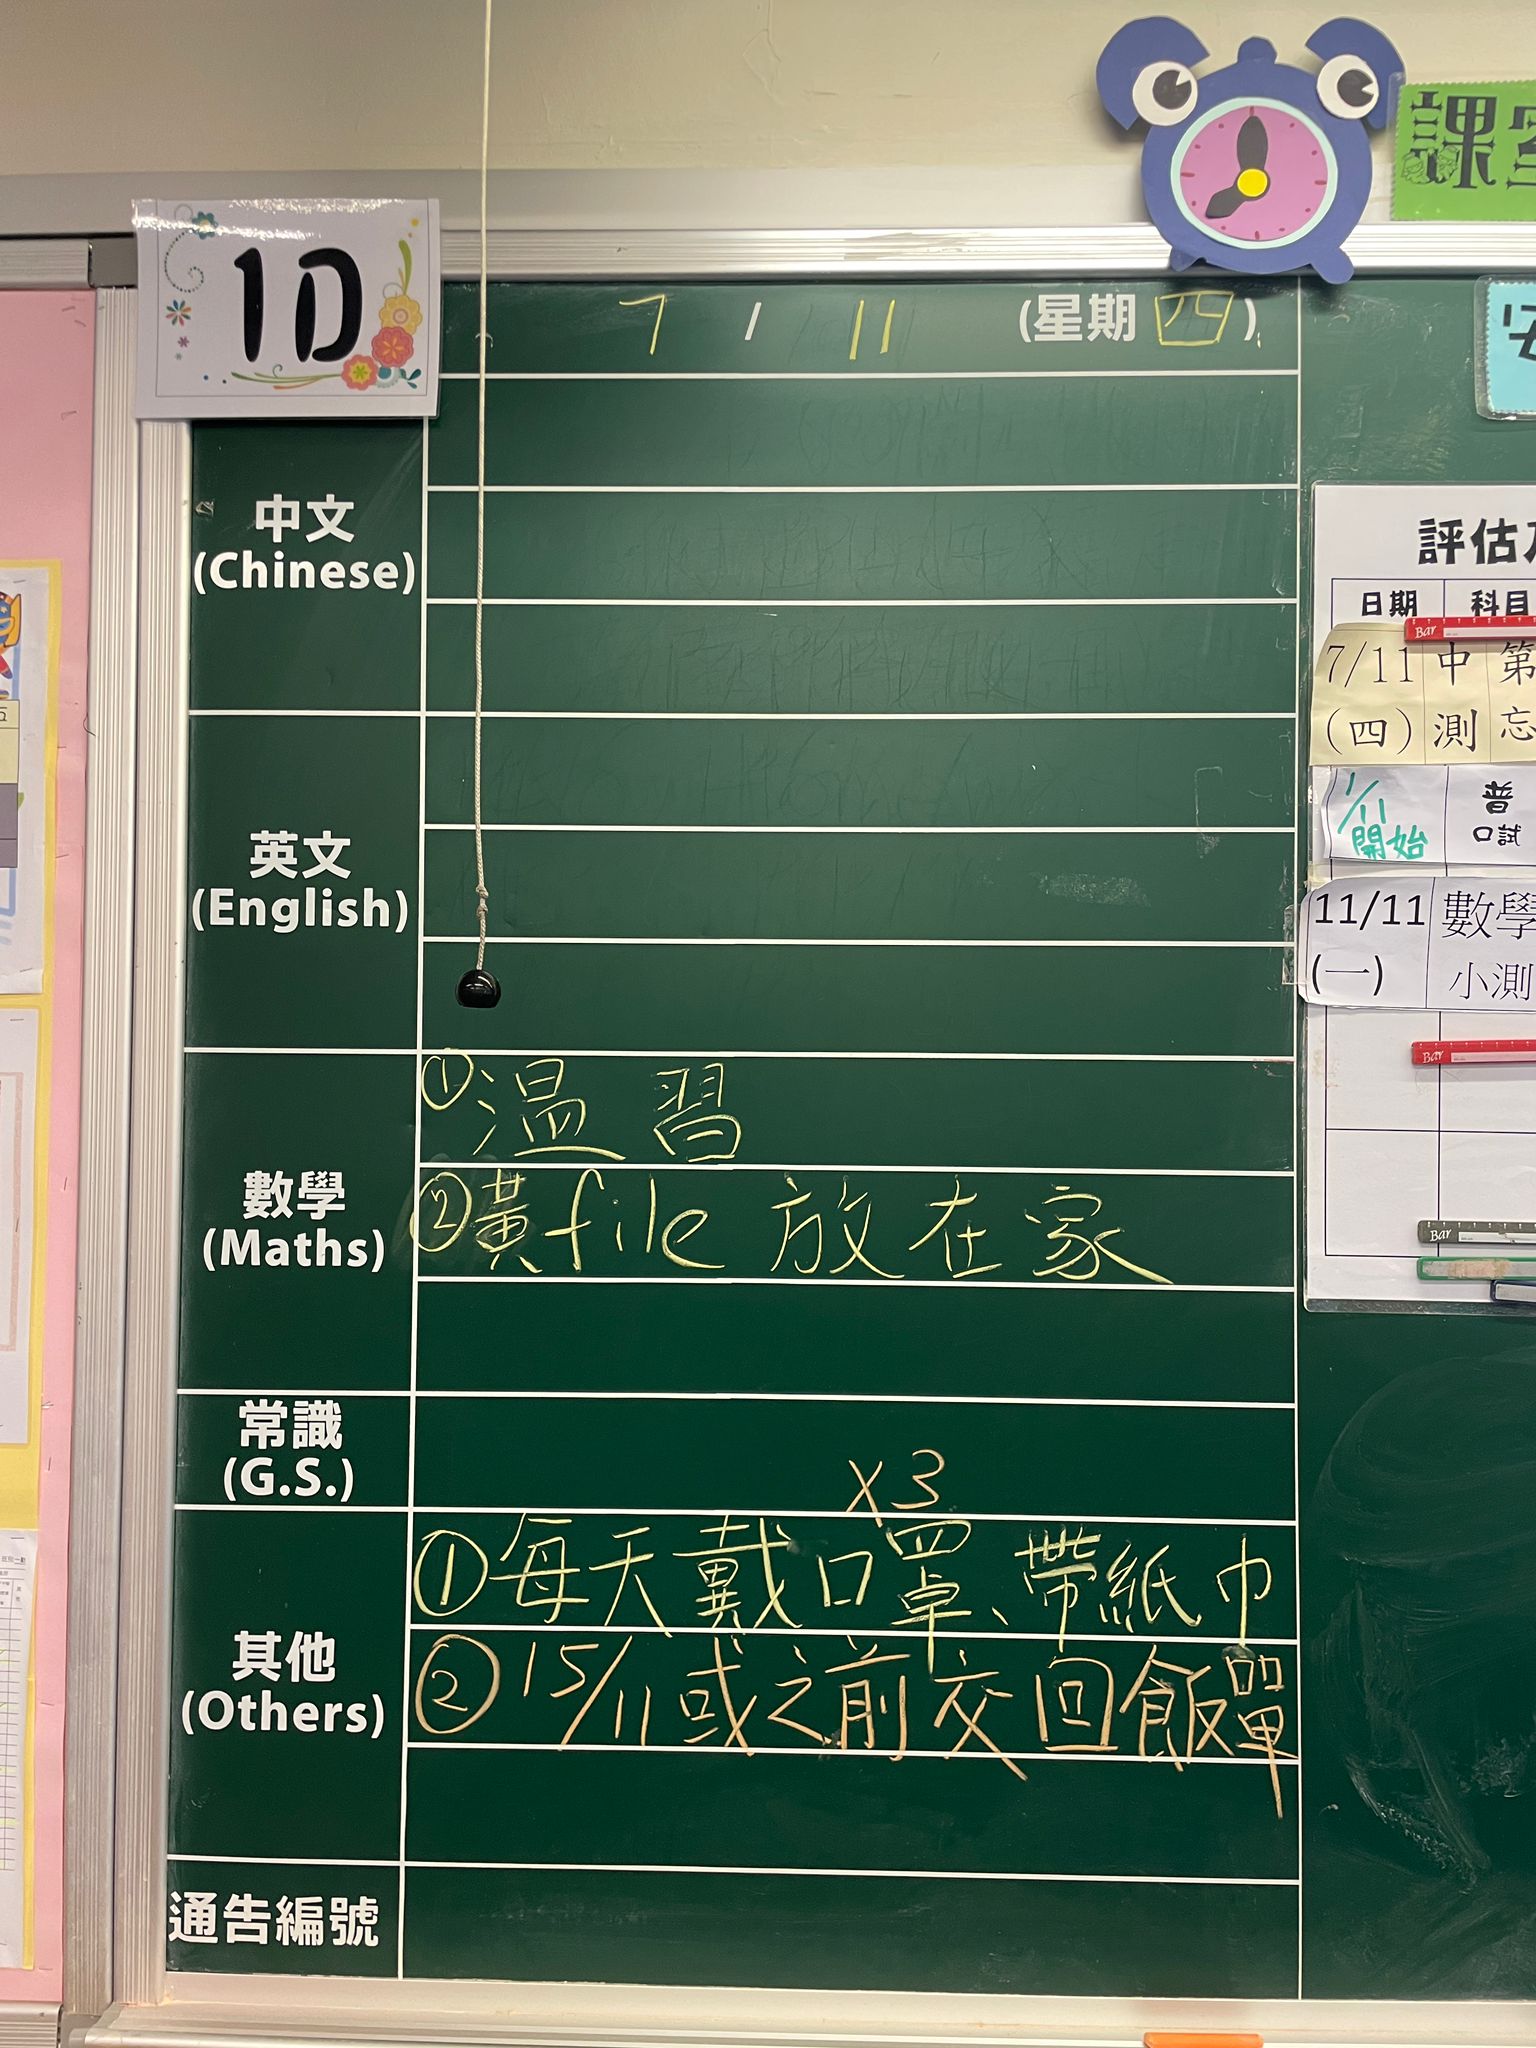 課室
1D
7 / 11 (星期四)
中文
(Chinese)
英文
(English)
數學
(Maths)
①溫習
②黃file 放在家
常識
(G.S.)
x3
其他
(Others)
①每天戴口罩、帶紙巾
②15/11或之前交回飯單
通告編號
評估
日期 科目
Bar
7/11 中 第
(四) 測 忘
1/11 普
開始 口試
11/11 數學
(一) 小測
Bar
Bar